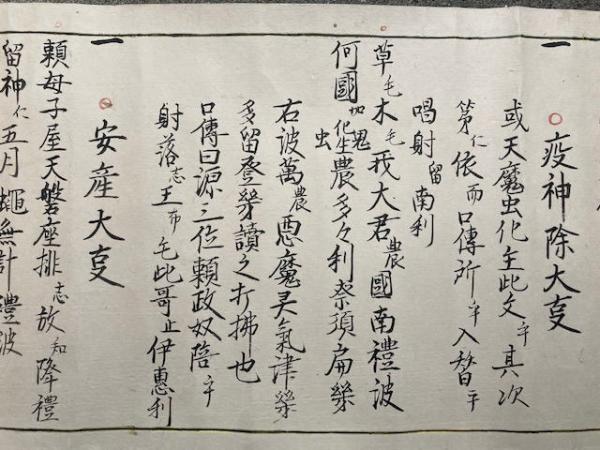 一 疫神除大亊
或天魔虫化主此文ヲ其次
第仁依而口傳所ヲ入替ヲ
唱射留南利
草毛木毛我大君農國南禮波
何國加鬼化生虫農多々利祭須扁幾
右波萬農悪魔灵氣津幾
多留登幾讀之打拂也
口傳曰源三位頼政奴陪ヲ
射落志王布毛此哥止伊惠利
一 安産大亊
頼母子屋天磐座排志放知降禮
留神仁五月蠅無計禮波